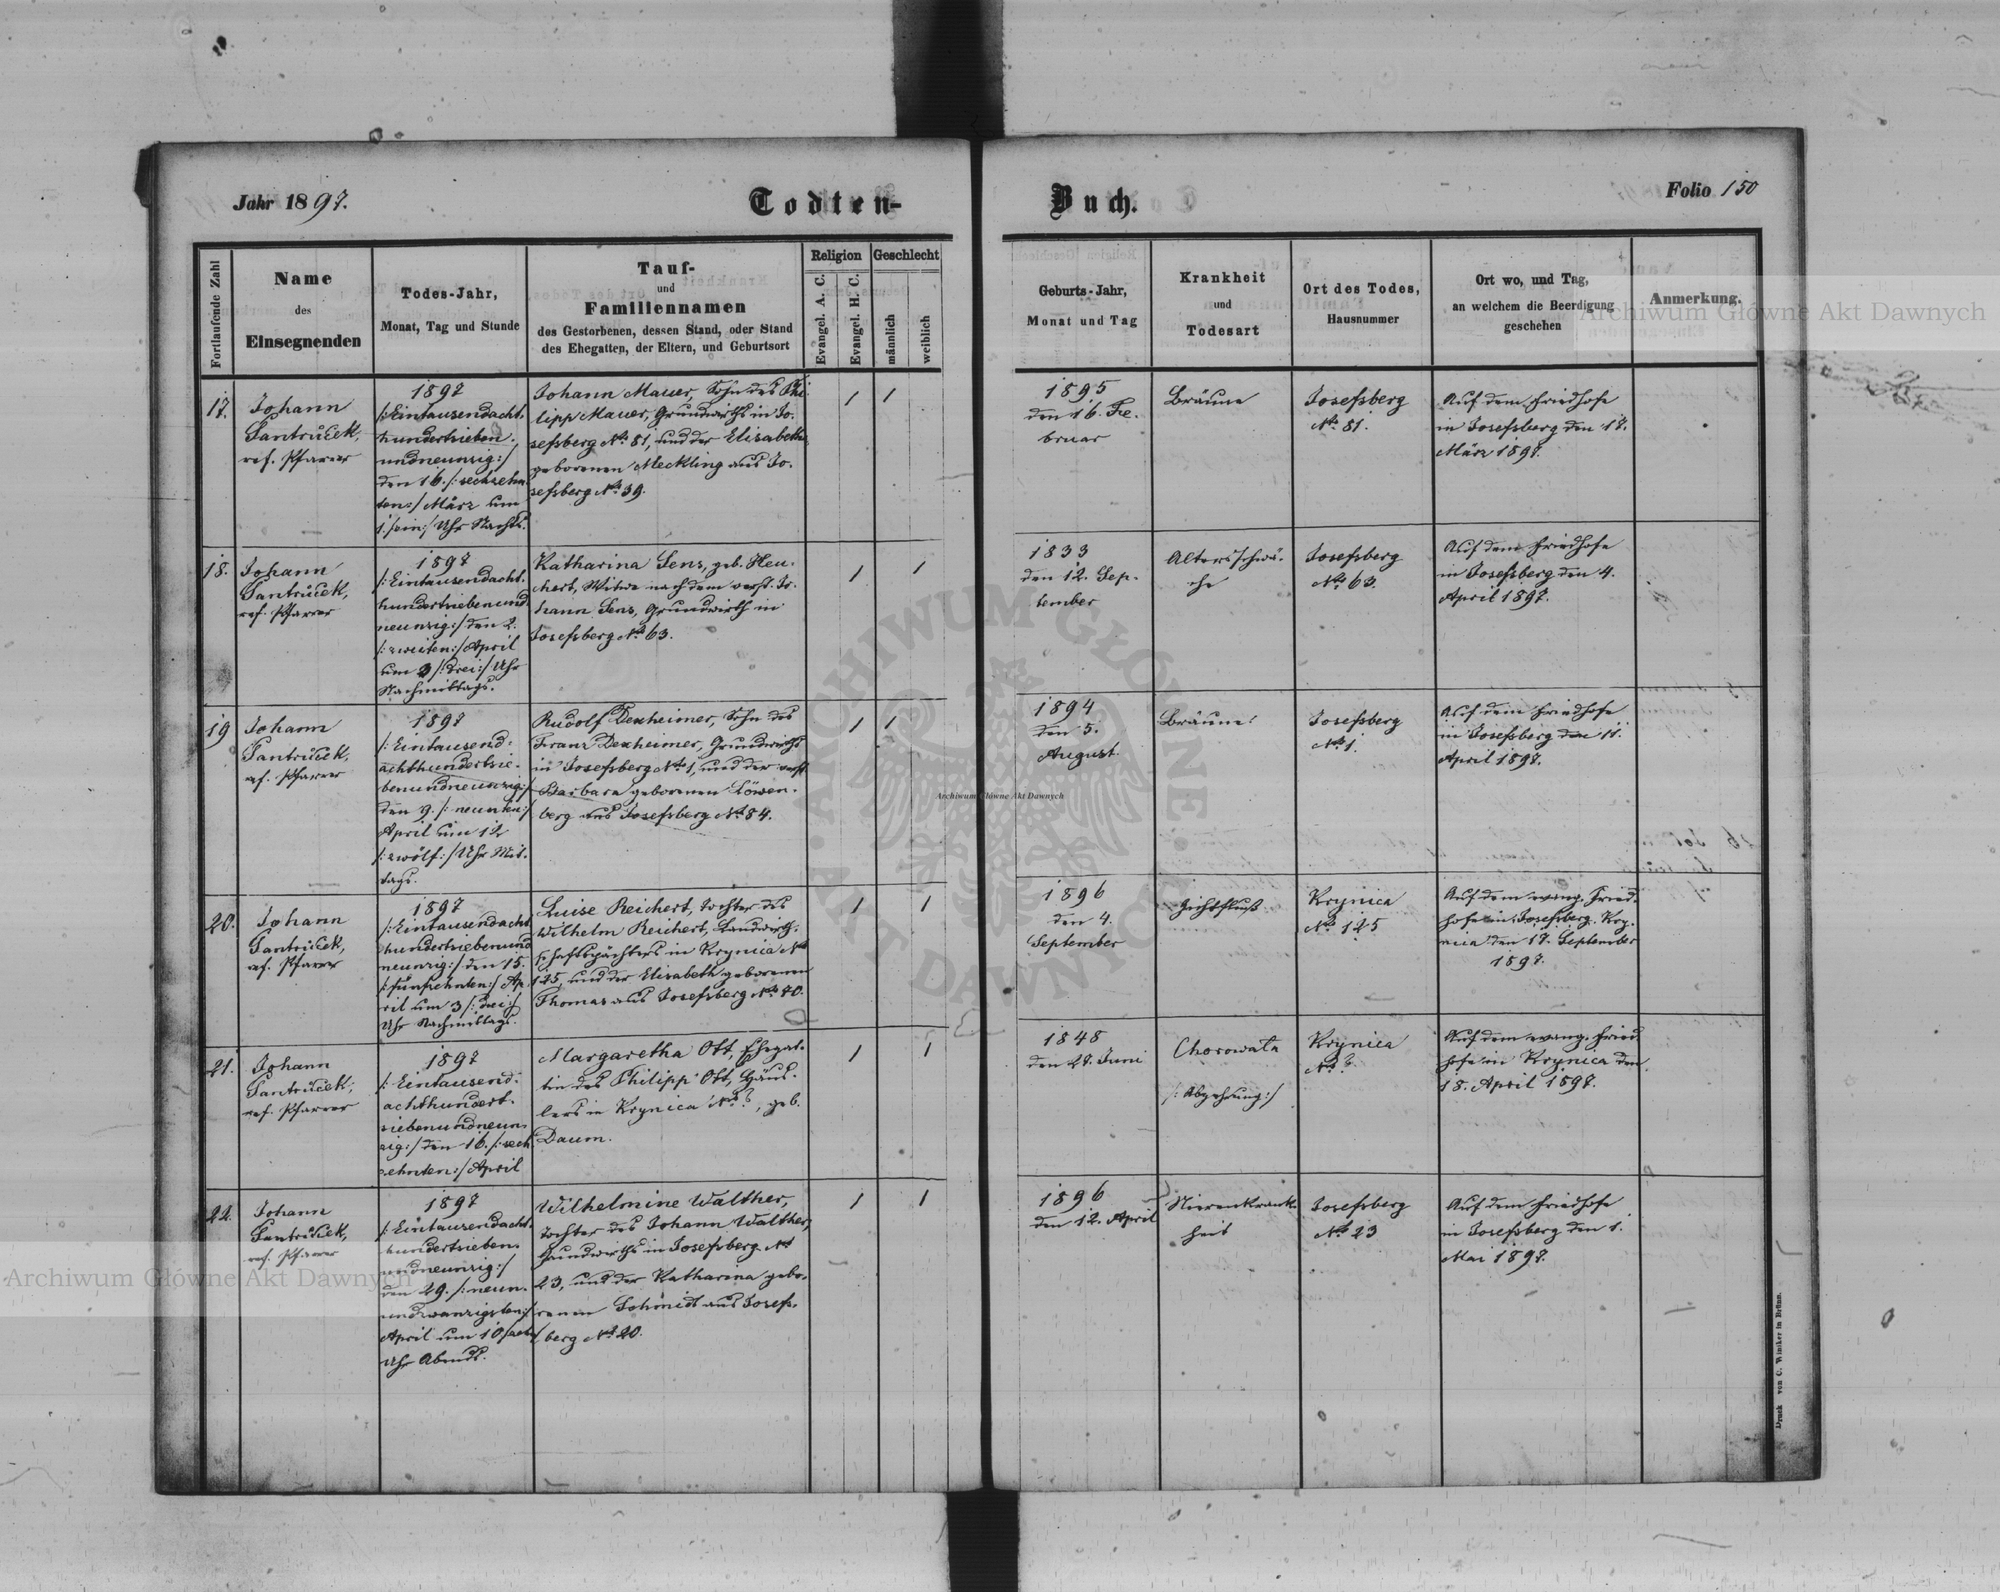 Jahr 1897.
Todten-
Buch.
Folio 150
Fortlaufende Zahl
Name
des
Einsegnenden
Todes-Jahr,
Monat, Tag und Stunde
Tauf-
und
Familiennamen
des Gestorbenen, dessen Stand, oder Stand
des Ehegatten, der Eltern, und Geburtsort
Religion
Evangel. A. C.
Evangel. H. C.
Geschlecht
männlich
weiblich
Geburts-Jahr,
Monat und Tag
Krankheit
und
Todesart
Ort des Todes,
Hausnummer
Ort wo, und Tag,
an welchem die Beerdigung
geschehen
Anmerkung.
17.
Johann
Šantrůček,
ref. Pfarrer
1897
/:Eintausendacht.
hundertsieben.
undneunzig:/
den 16. /:sechzehn
ten:/ März um
1 /:ein:/ Uhr Nachts.
Johann Mauer, Sohn des Phi
lipp Mauer, Grundwirths in Jo.
sefsberg No. 81, und der Elisabeth,
geborenen Meckling aus Jo.
sefsberg No. 39.
1
1
1895
den 16. Fe.
bruar
Bräune
Josefsberg
No. 81.
Auf dem Friedhofe
in Josefsberg den 17.
März 1897.
18.
Johann
Šantrůček,
ref. Pfarrer
1897
/:Eintausendacht.
hundertsiebenund
neunzig:/ den 2.
/:zweiten:/ April
um 3 /:drei:/ Uhr
Nachmittags.
Katharina Senz, geb. Heu.
chert, Witwe nach dem verst. Jo.
hann Senz, Grundwirth in
Josefsberg No. 63.
1
1
1833
den 12. Sep.
tember
Altersschwä.
che
Josefsberg
No. 63.
Auf dem Friedhofe
in Josefsberg den 4.
April 1897.
19
Johann
Šantrůček,
ref. Pfarrer
1897
/:Eintausend:
achthundertsie.
benundneunzig:/
den 9. /:neunten:/
April um 12
/:zwölf:/ Uhr Mit.
tags.
Rudolf Dexheimer, Sohn des
Franz Dexheimer, Grundwirths
in Josefsberg No. 1, und der verst.
Barbara geborenen Löwen.
berg aus Josefsberg No. 84.
1
1
1894
den 5.
August.
Bräune
Josefsberg
No. 1.
Auf dem Friedhofe
in Josefsberg den 11.
April 1897.
20.
Johann
Šantrůček,
ref. Pfarrer
1897
/:Eintausendacht
hundertsiebenund
neunzig:/ den 15.
/:fünfzehnten:/ Ap.
ril um 3 /:drei:/
Uhr Nachmittags.
Luise Reichert, Tochter des
Wilhelm Reichert, Landwirth.
schaftspächters in Krynica No.
125, und der Elisabeth geborenen
Thomas aus Josefsberg No. 40.
1
1
1896
den 4.
September
Gichtfluß
Krynica
No. 125
Auf dem evang. Fried.
hofe in Josefsberg. Kry.
nica den 17. September
1897.
21.
Johann
Šantrůček,
ref. Pfarrer
1897
/:Eintausend.
achthundert.
siebenundneun.
zig:/ den 16. /:sech
zehnten:/ April
Margaretha Ott, Ehegat.
tin des Philipp Ott, Häus.
lers in Krynica No. ?, geb.
Daum.
1
1
1848
den 28. Juni
Chorowata
/:Abzehrung:/
Krynica
No. ?
Auf dem evang. Fried
hofe in Krynica den
18. April 1897.
22.
Johann
Šantrůček,
ref. Pfarrer
1897
/:Eintausendacht.
hundertsieben.
undneunzig:/
den 29. /:neun.
undzwanzigsten:/
April um 10 /:zehn:/
Uhr Abends.
Wilhelmine Walther,
Tochter des Johann Walther,
Grundwirths in Josefsberg No.
23, und der Katharina gebo.
renen Schmidt aus Josefs.
berg No. 20.
1
1
1896
den 12. April
Nierenkrank.
heit
Josefsberg
No. 23
Auf dem Friedhofe
in Josefsberg den 1.
Mai 1897.
Druck von C. Winiker in Brünn.
Archiwum Główne Akt Dawnych
Archiwum Główne Akt Dawnych
Archiwum Główne Akt Dawnych
ARCHIWUM GŁÓWNE AKT DAWNYCH